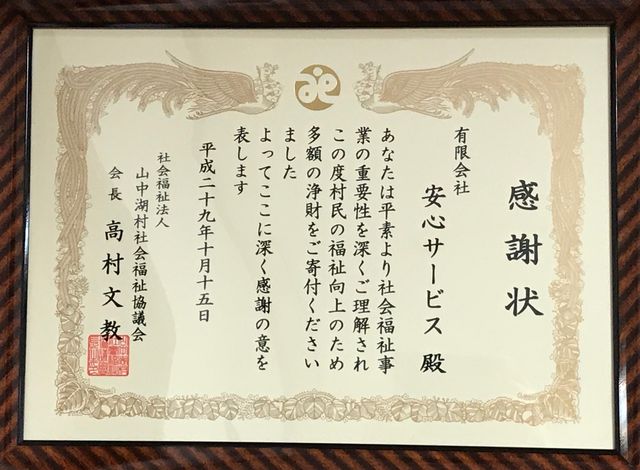 感謝状
有限会社
安心サービス 殿
あなたは平素より社会福祉事
業の重要性を深くご理解され
この度村民の福祉向上のため
多額の浄財をご寄付ください
ました
よってここに深く感謝の意を
表します
平成二十九年十月十五日
社会福祉法人
山中湖村社会福祉協議会
会長 高村文教